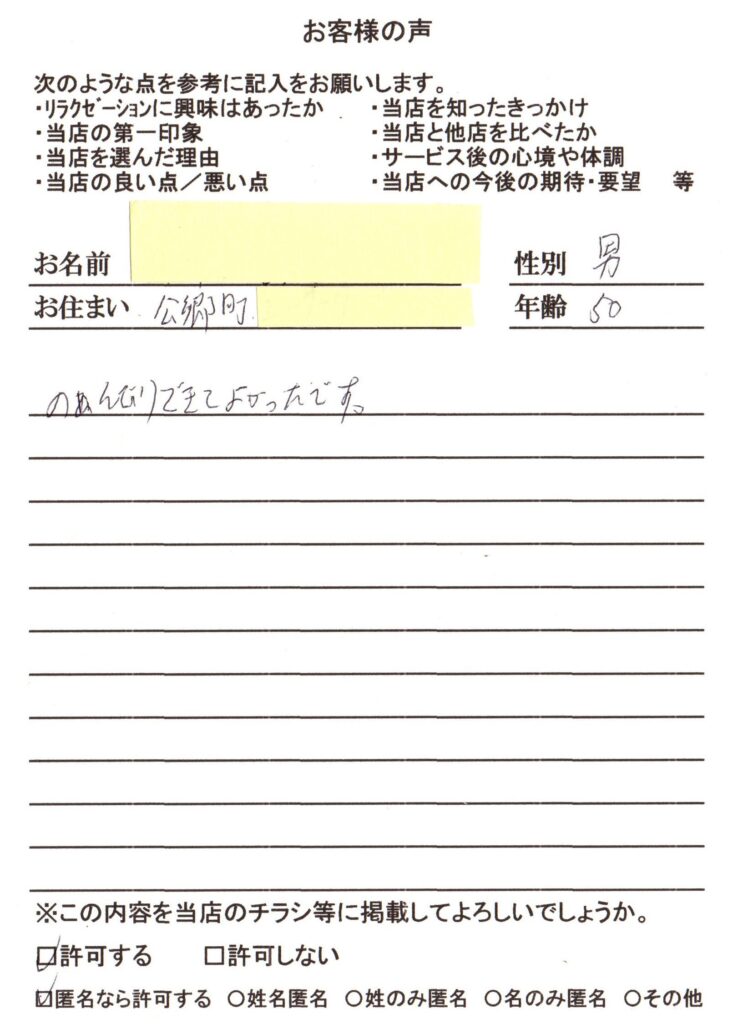 お客様の声
次のような点を参考に記入をお願いします。
・ﾘﾗｸｾﾞｰｼｮﾝに興味はあったか ・当店を知ったきっかけ
・当店の第一印象 ・当店と他店を比べたか
・当店を選んだ理由 ・サービス後の心境や体調
・当店の良い点／悪い点 ・当店への今後の期待・要望 等
お名前 性別 男
お住まい 公郷町 年齢 50
のんびりできてよかったです。
※この内容を当店のチラシ等に掲載してよろしいでしょうか。
☑許可する □許可しない
☑匿名なら許可する ○姓名匿名 ○姓のみ匿名 ○名のみ匿名 ○その他